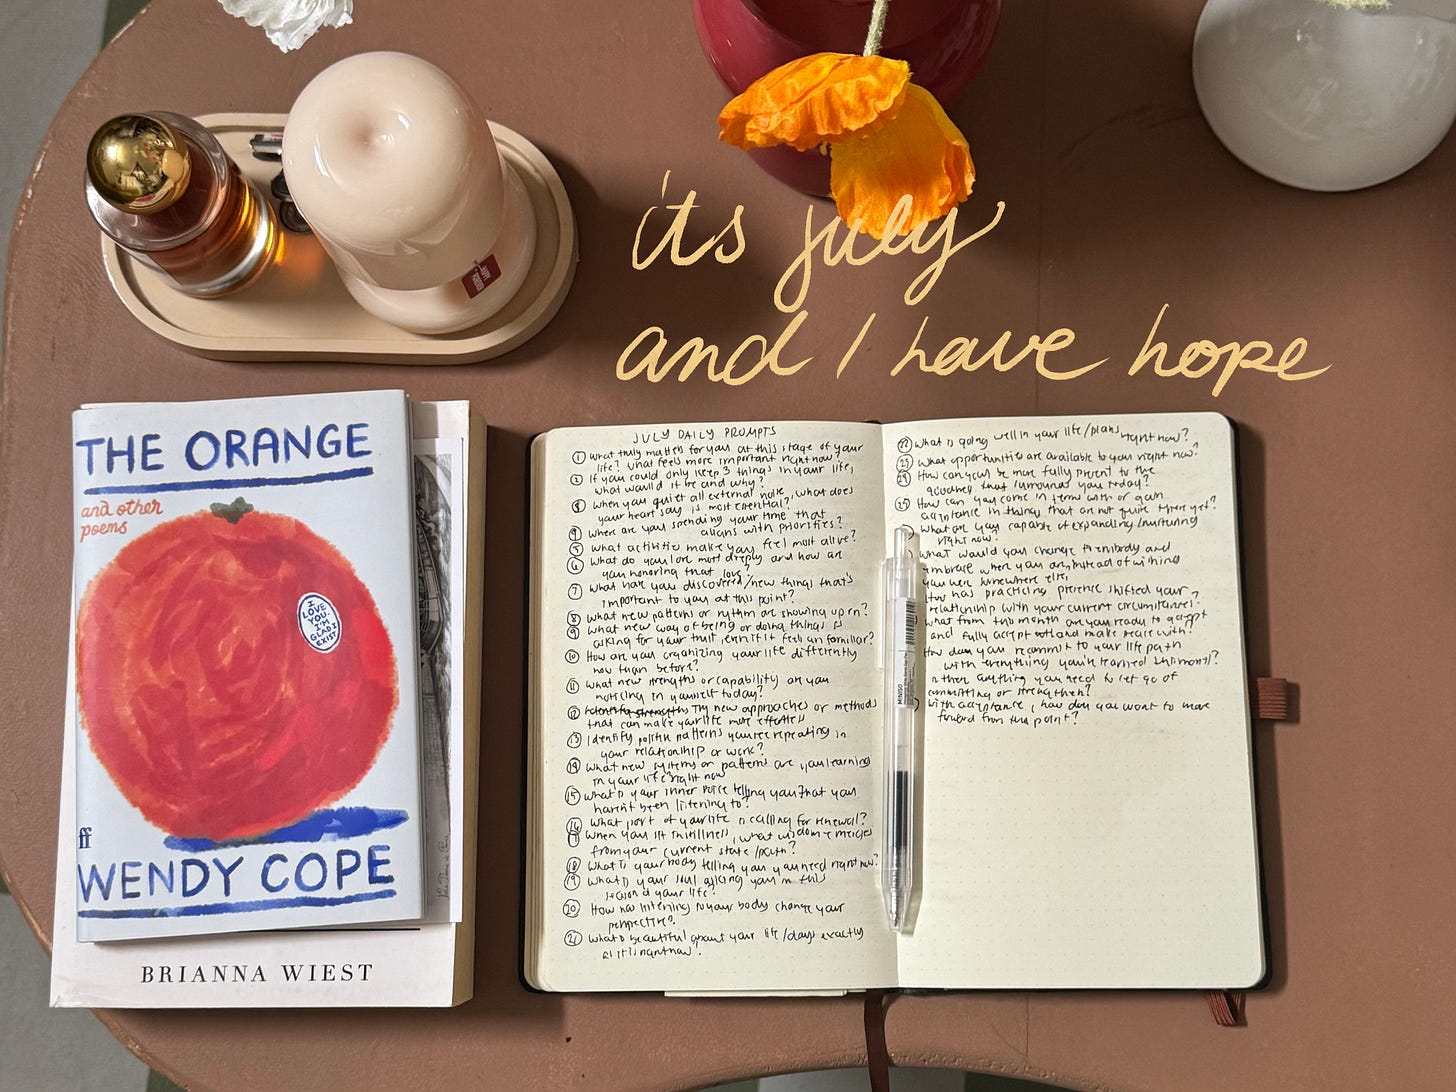 its july
and I have hope
THE ORANGE
and other
poems
I
LOVE
YOU.
I'M
GLAD I
EXIST
ff
WENDY COPE
BRIANNA WIEST
JULY DAILY PROMPTS
1 What truly matters for you at this stage of your
life? What feels more important right now?
2 If you could only keep 3 things in your life,
what would it be and why?
3 When you quiet all external noise, what does
your heart say is most essential?
4 Where are you spending your time that
aligns with priorities?
5 What activities make you feel most alive?
6 What do you love most deeply and how are
you honoring that love?
7 What have you discovered/new things that's
important to you at this point?
8 What new patterns or rythm are showing up rn?
9 What new way of being or doing things is
asking for your trust, even if it feels unfamiliar?
10 How are you organizing your life differently
now than before?
11 What new strengths or capability are you
noticing in yourself today?
12 Identify strengths Try new approaches or methods
that can make your life more effortless
13 Identify positive patterns you're repeating in
your relationship or work?
14 What new systems or patterns are you learning
in your life right now
15 What is your inner voice telling you that you
haven't been listening to?
16 What part of your life is calling for renewal?
17 When you sit in stillness, what wisdom emerges
from your current state/path?
18 What is your body telling you you need right now?
19 What is your soul asking you in this
season of your life?
20 How has listening to your body change your
perspective?
21 What's beautiful about your life/days exactly
as it is right now.
22 What is going well in your life/plans right now?
23 What opportunities are available to you right now?
24 How can you be more fully present to the
goodness that surrounds you today?
25 How can you come in terms with or gain
acceptance in things that are not quite there yet?
What are you capable of expanding/nurturing
right now?
What would you change thembody and
embrace when you are, instead of wishing
you were somewhere else,
has practicing presence shifted your
relationship with your current circumstances?
what from this month are you ready to accept
and fully accept and make peace with?
How do you recommit to your life path
with everything you've learned this month?
Is there anything you need to let go of
committing or strengthen?
With acceptance, how do you want to move
forward from this point?
MUJI